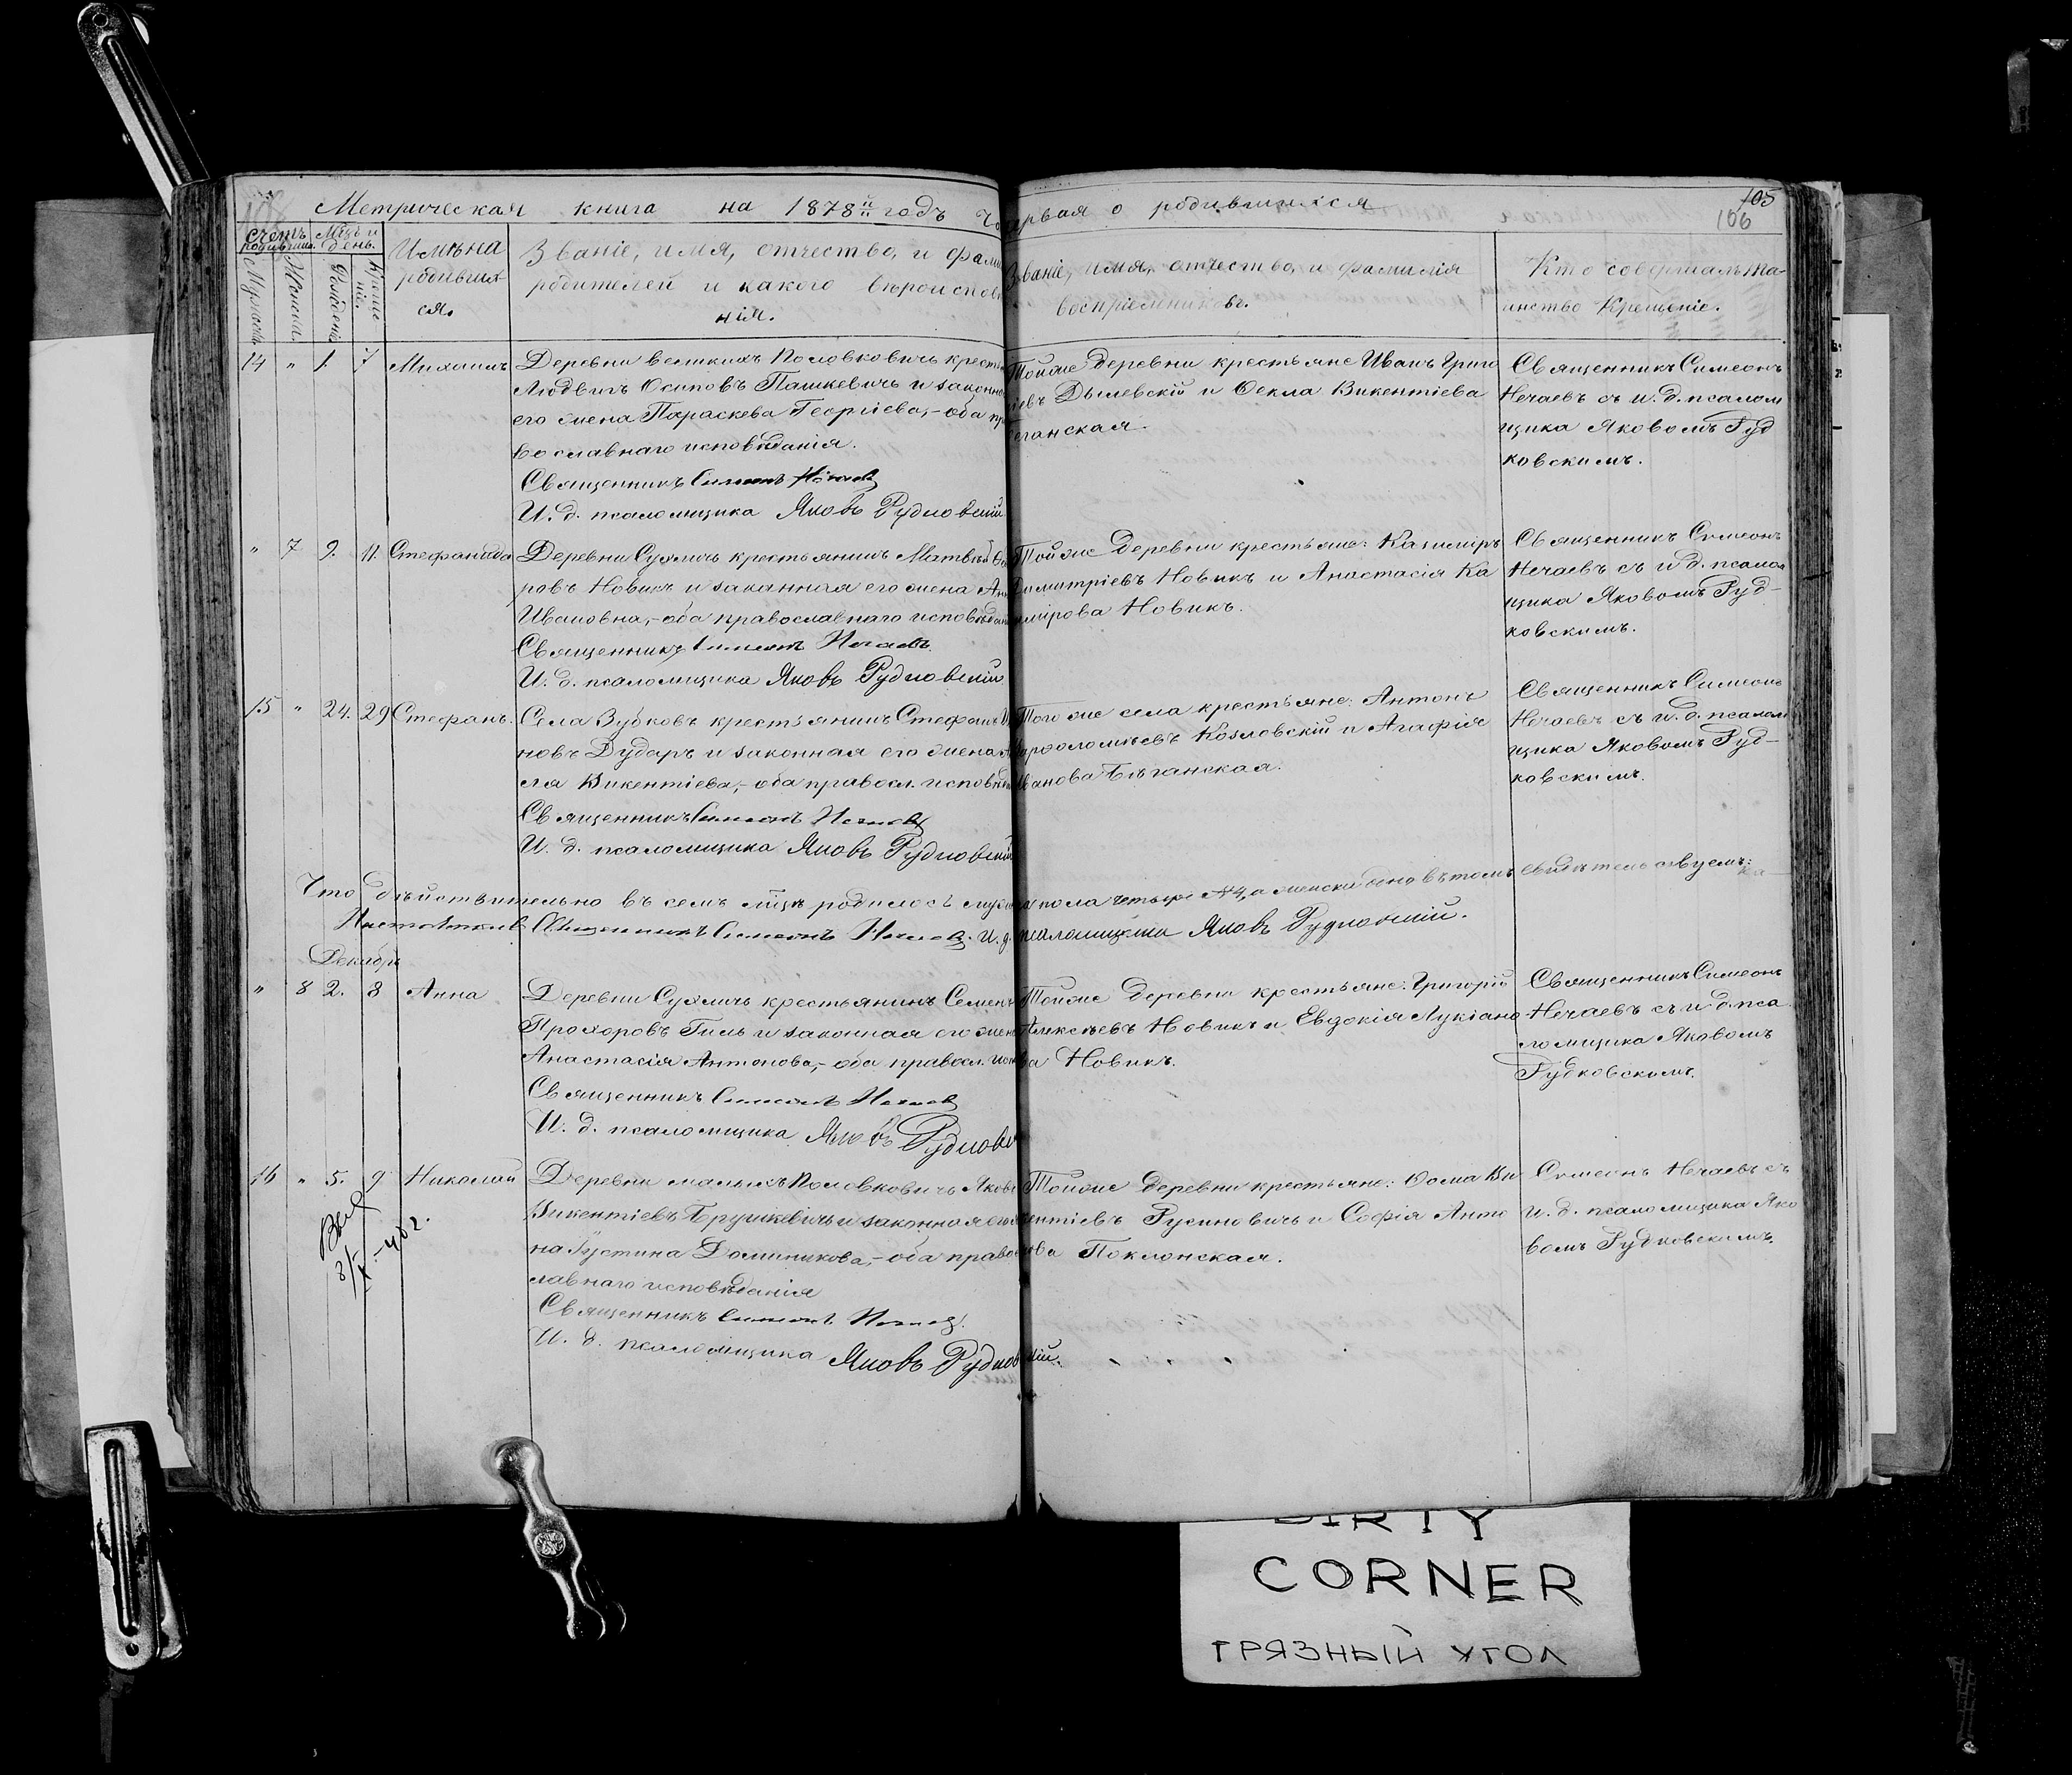 Метрическая книга на 1878й годъ
первая о родившихся
105
106
счетъ родившихся.
Мѣсяцъ и день.
Мужеска
Женска.
Рожденія
Крещенія.
Имѣна
родивших
ся.
Званіе, имя, отчество, и фами
родителей и какого вѣроисповѣ
нія.
Званіе, имя, отчество, и фамилія
воспріемниковъ.
Кто совершалъ та-
инство Крещеніе.
14 " 1. 7 Михаилъ
Деревни великихъ Половковичъ кресть
Людвигъ Осиповъ Пашкевичъ и законна
его жена Параскева Георгіева,- оба пра
вославнаго исповѣданія.
Священникъ Симеонъ Нечаевъ
И. д. псаломщика Яковъ Рудковскій
Тойже деревни крестьяне Иванъ Григо
ріевъ Дылевскій и Ѳекла Викентіева
Священникъ Симеонъ
Нечаевъ съ и. д. псалом
щика Яковомъ Руд
ковскимъ.
" 7 9. 11. Стефанида
Деревни Сухличъ крестьянинъ Матвѣй
ровъ Новикъ и законная его жена Анна
Ивановна,- оба православнаго исповѣдан
Священникъ Симеонъ Нечаевъ
И. д. псаломщика Яковъ Рудковскій
Тойже деревни крестьяне: Казимиръ
Димитріевъ Новикъ и Анастасія Ка
зимірова Новикъ.
Священникъ Симеонъ
Нечаевъ съ и. д. псалом
щика Яковомъ Руд-
ковскимъ.
15 " 24. 29 Стефанъ.
Села Зубковъ крестьянинъ Стефанъ И
новъ Дударъ и законная его жена
ля Викентіева,- оба правосл. исповѣд
Священникъ Симеонъ Нечаевъ
И. д. псаломщика Яковъ Рудковскій
Того же села крестьяне: Антонъ
Варѳоломѣевъ Козловскій и Агафія
Иванова Бѣганская.
Священникъ Симеонъ
Нечаевъ съ и. д. псалом
щика Яковомъ Руд-
ковскимъ.
Что дѣйствительно въ семъ м-цѣ родилось мужска пола четыре №4, а женска одно въ томъ свидѣтельствуемъ:
Священникъ Симеонъ Нечаевъ. И. д. псаломщика Яковъ Рудковскій.
Декабрь
" 8 2. 3 Анна
Деревни Сухличъ крестьянинъ Семенъ
Прохоровъ Гиль и законная его жена
Анастасія Антонова,- оба правосл. испов
Священникъ Симеонъ Нечаевъ
И. д. псаломщика Яковъ Рудковс
Тойже деревни крестьяне: Григорій
Алексѣевъ Новикъ и Евдокія Лукіано
ва Новикъ.
Священникъ Симеонъ
Нечаевъ съ и. д. пса
ломщика Яковомъ
Рудковскимъ.
16 " 5. 9 Николай
Деревни малыхъ Половковичъ Яковъ
Викентіевъ Брушкевичъ и законная его же
на Густина Доминикова,- оба право
славнаго исповѣданія
Священникъ Симеонъ Нечаевъ.
И. д. псаломщика Яковъ Рудковскій.
Тойже деревни крестьяне: Ѳома Ви
кентіевъ Русиновичъ и Софія Анто
нова Поклонская.
Симеонъ Нечаевъ съ
и. д. псаломщика Яко
вомъ Рудковскимъ.
DIRTY
CORNER
ГРЯЗНЫЙ УГОЛ